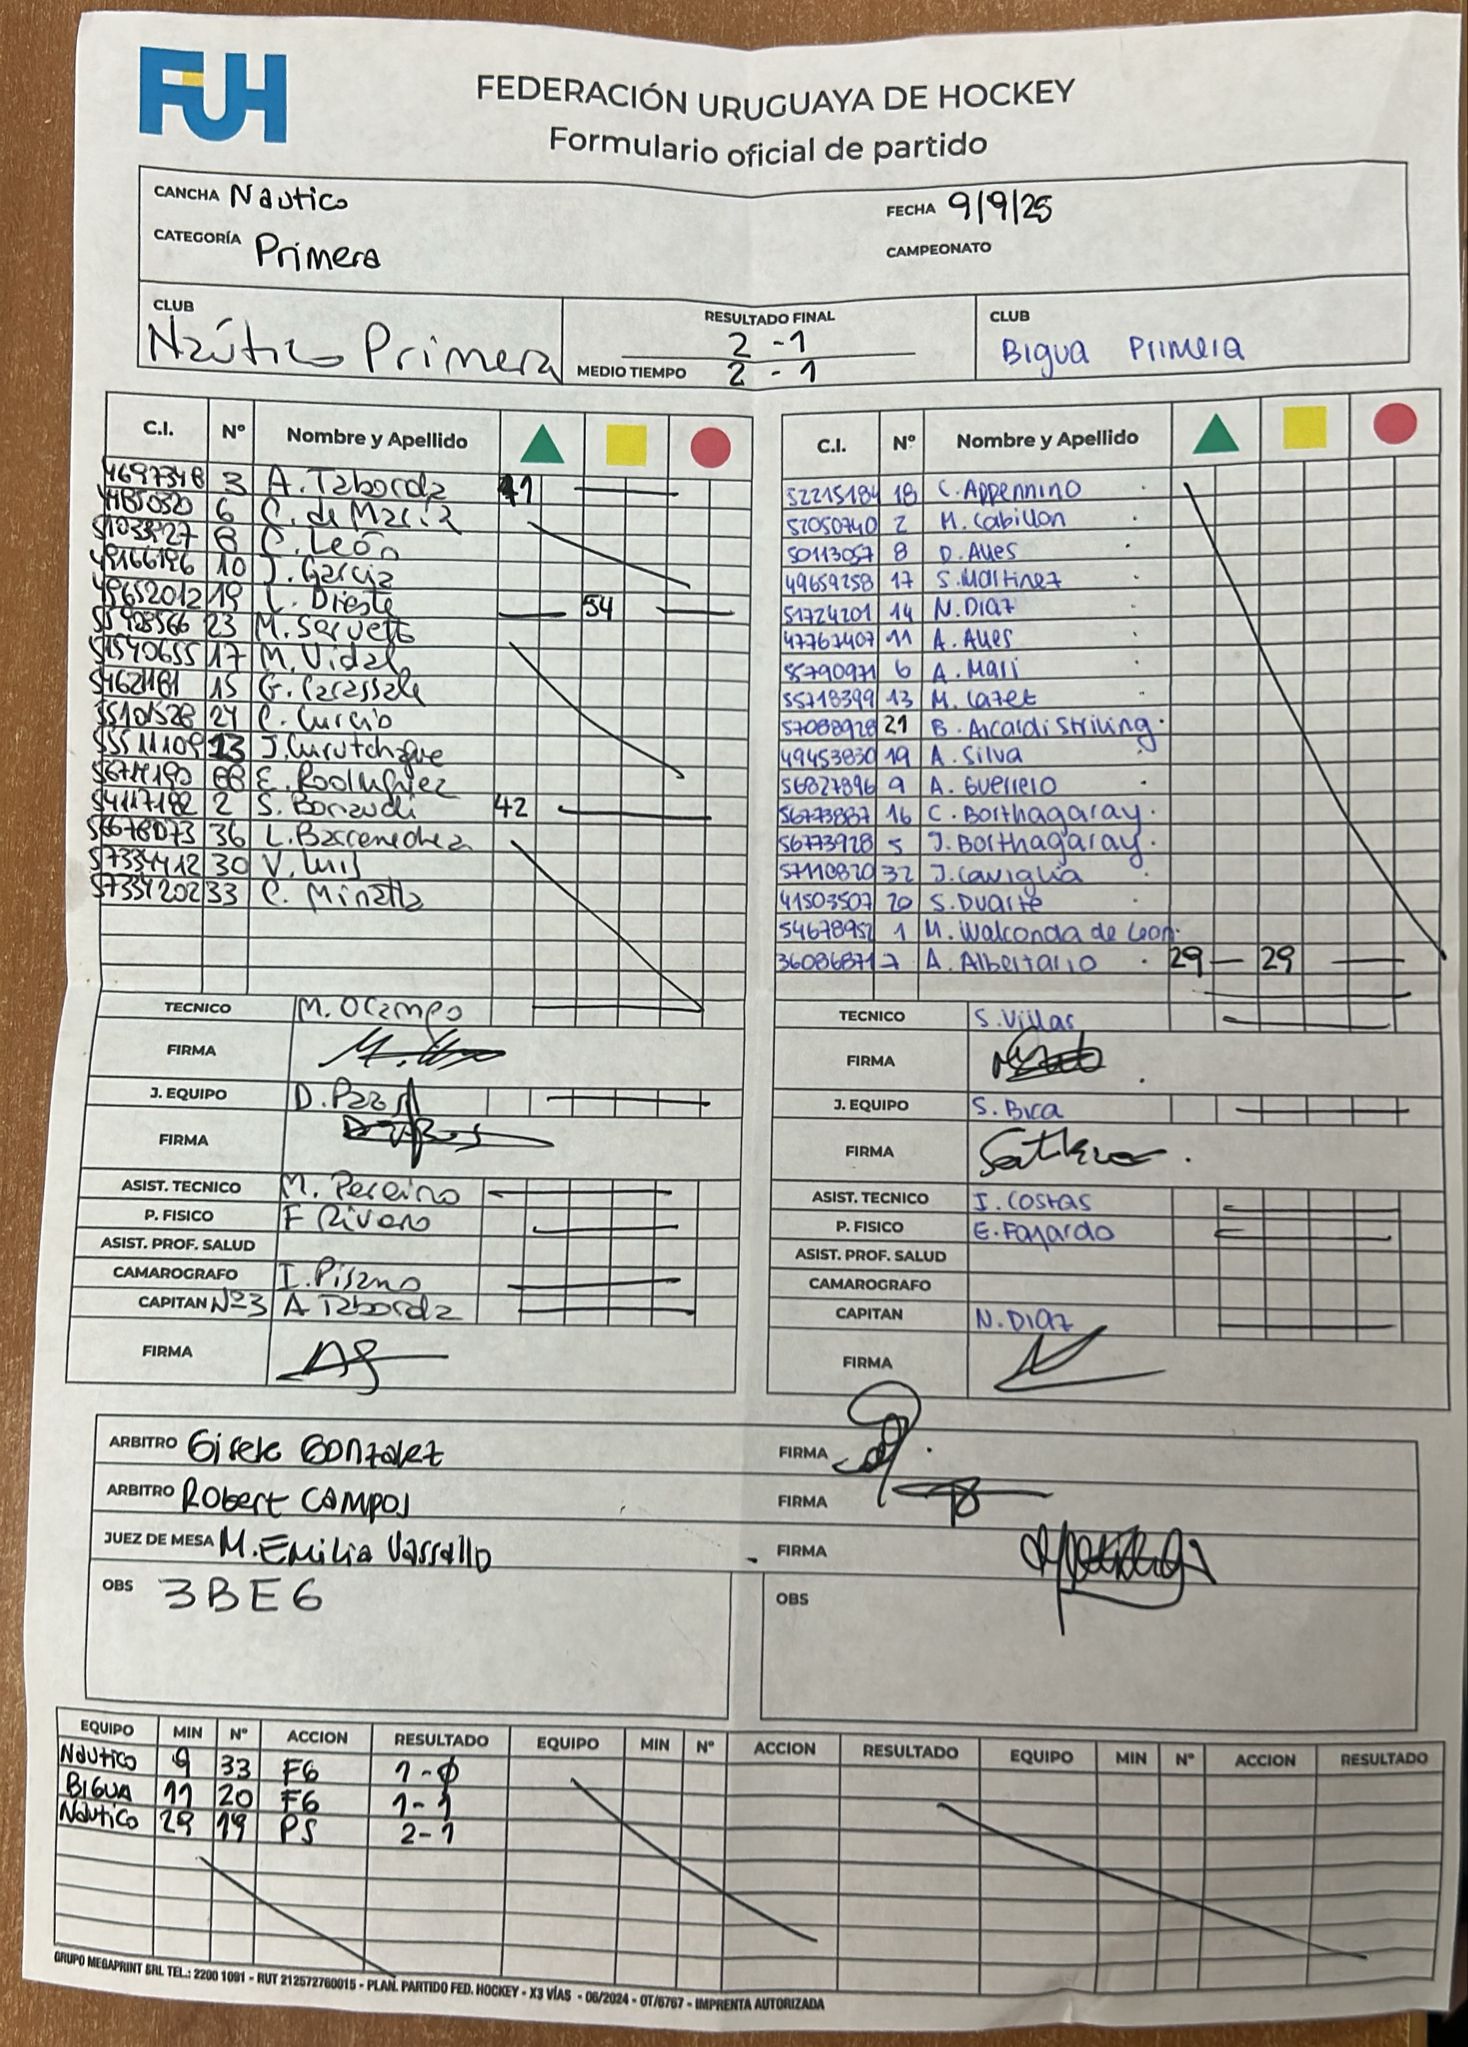 FUH
FEDERACIÓN URUGUAYA DE HOCKEY
Formulario oficial de partido
CANCHA Náutico
FECHA 9/9/25
CATEGORÍA Primera
CAMPEONATO
CLUB Náutico Primera
RESULTADO FINAL 2 - 1
MEDIO TIEMPO 2 - 1
CLUB Bigua Primera
C.I. Nº Nombre y Apellido
3 A. Taborda 41
6 C. de María
8 C. León
10 J. García
19 L. Dieste 54
23 M.
17 M. Vidal
15 G. Carassale
24 C. Curcio
13 J. Curutchague
88 E. Rodriguez
2 S. Borraudi 42
36 L. Barrenechea
57334412 30 V. Luis
57334202 33 C. Minetti
TECNICO M. Ocampo
FIRMA
J. EQUIPO D. Pazos
FIRMA
ASIST. TECNICO M. Pereira
P. FISICO F Rivero
ASIST. PROF. SALUD
CAMAROGRAFO I. Pisano
CAPITAN Nº3 A Taborda
FIRMA
C.I. Nº Nombre y Apellido
52215184 18 C. Appennino
52050740 2 M. Cabillon
50113057 8 D. Alles
49659258 17 S. Martinez
51724201 14 N. Diaz
47767407 11 A. Alles
55790971 6 A. Mari
55718399 13 M. Cazet
57088928 21 B. Arcardi Striling
49453830 19 A. Silva
56827896 9 A. Guerrero
56773887 16 C. Borthagaray
56773928 5 J. Borthagaray
57110820 32 J. Caviglia
41503507 20 S. Duarte
54678952 1 M. Walconda de Leon
36086871 7 A. Albertario 29 29
TECNICO S. Villar
FIRMA
J. EQUIPO S. Bica
FIRMA
ASIST. TECNICO I. Costas
P. FISICO E. Fajardo
ASIST. PROF. SALUD
CAMAROGRAFO
CAPITAN N. Diaz
FIRMA
ARBITRO Gisele Gonzalez FIRMA
ARBITRO Robert Campos FIRMA
JUEZ DE MESA M. Emilia Vassallo FIRMA
OBS 3BE6
OBS
EQUIPO MIN Nº ACCION RESULTADO EQUIPO MIN Nº ACCION RESULTADO EQUIPO MIN Nº ACCION RESULTADO
Náutico 9 33 FG 1-0
BIGUA 11 20 FG 1-1
Náutico 29 19 PS 2-1
GRUPO MEGAPRINT SRL TEL.: 2200 1091 - RUT 212572760015 - PLAN. PARTIDO FED. HOCKEY - X3 VÍAS - 06/2024 - OT/6767 - IMPRENTA AUTORIZADA